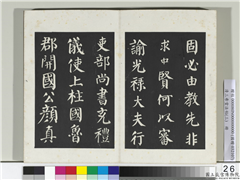 固必由教先非
求忠賢何以審
諭光祿大夫行
吏部尚書充禮
儀使上柱國魯
郡開國公顏真
26